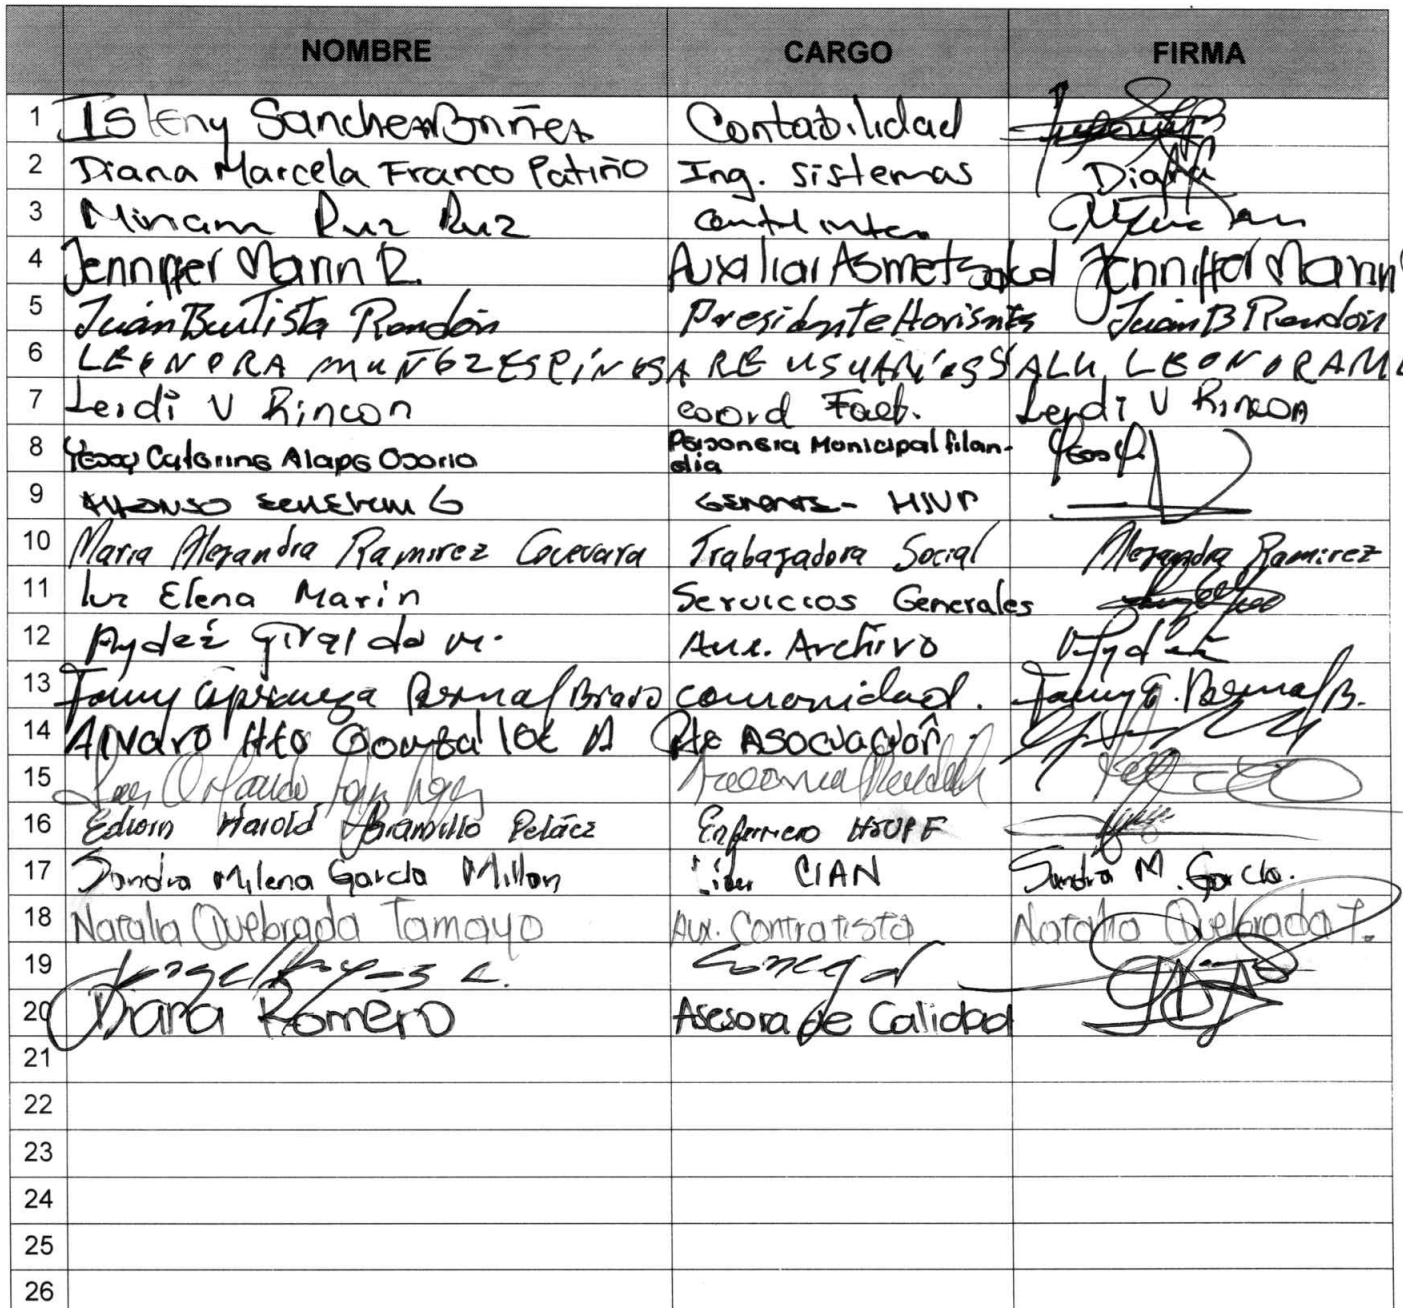 NOMBRE CARGO FIRMA
1 Isleny Sanchez Contabilidad
2 Diana Marcela Franco Patiño Ing. Sistemas Diana
3 Miriam Ruz Ruz
4 Jenniffer Marin R. Auxiliar Asmetsalud Jenniffer Marin
5 Juan Bautista Rondón Presidente Juan B Rondón
6 LEONORA MUÑOZ ESPINOSA
7 Leidi V Rincon coord Fact. Leidi V Rincon
8 Yessy Caterine Alape Osorio Personeria Municipal filan-
dia
9 Gerente - HSVP
10 Maria Alejandra Ramirez Guevara Trabajadora Social Alejandra Ramirez
11 luz Elena Marin Servicios Generales
12 Aydeé Giraldo M. Aux. Archivo Aydeé
13 Bernal Bravo comunidad. Bernal B.
14 Alvaro Hto Gonzalez A Pte Asociación
15 Luis Orlando
16 Edwin Harold Jaramillo Peláez Enfermero HSVPF
17 Sandra Milena Garcia Millan Líder CIAN Sandra M. Garcia.
18 Natalia Quebrada Tamayo Aux. Contratista Natalia Quebrada T.
19
20 Diana Romero Asesora de Calidad
21
22
23
24
25
26